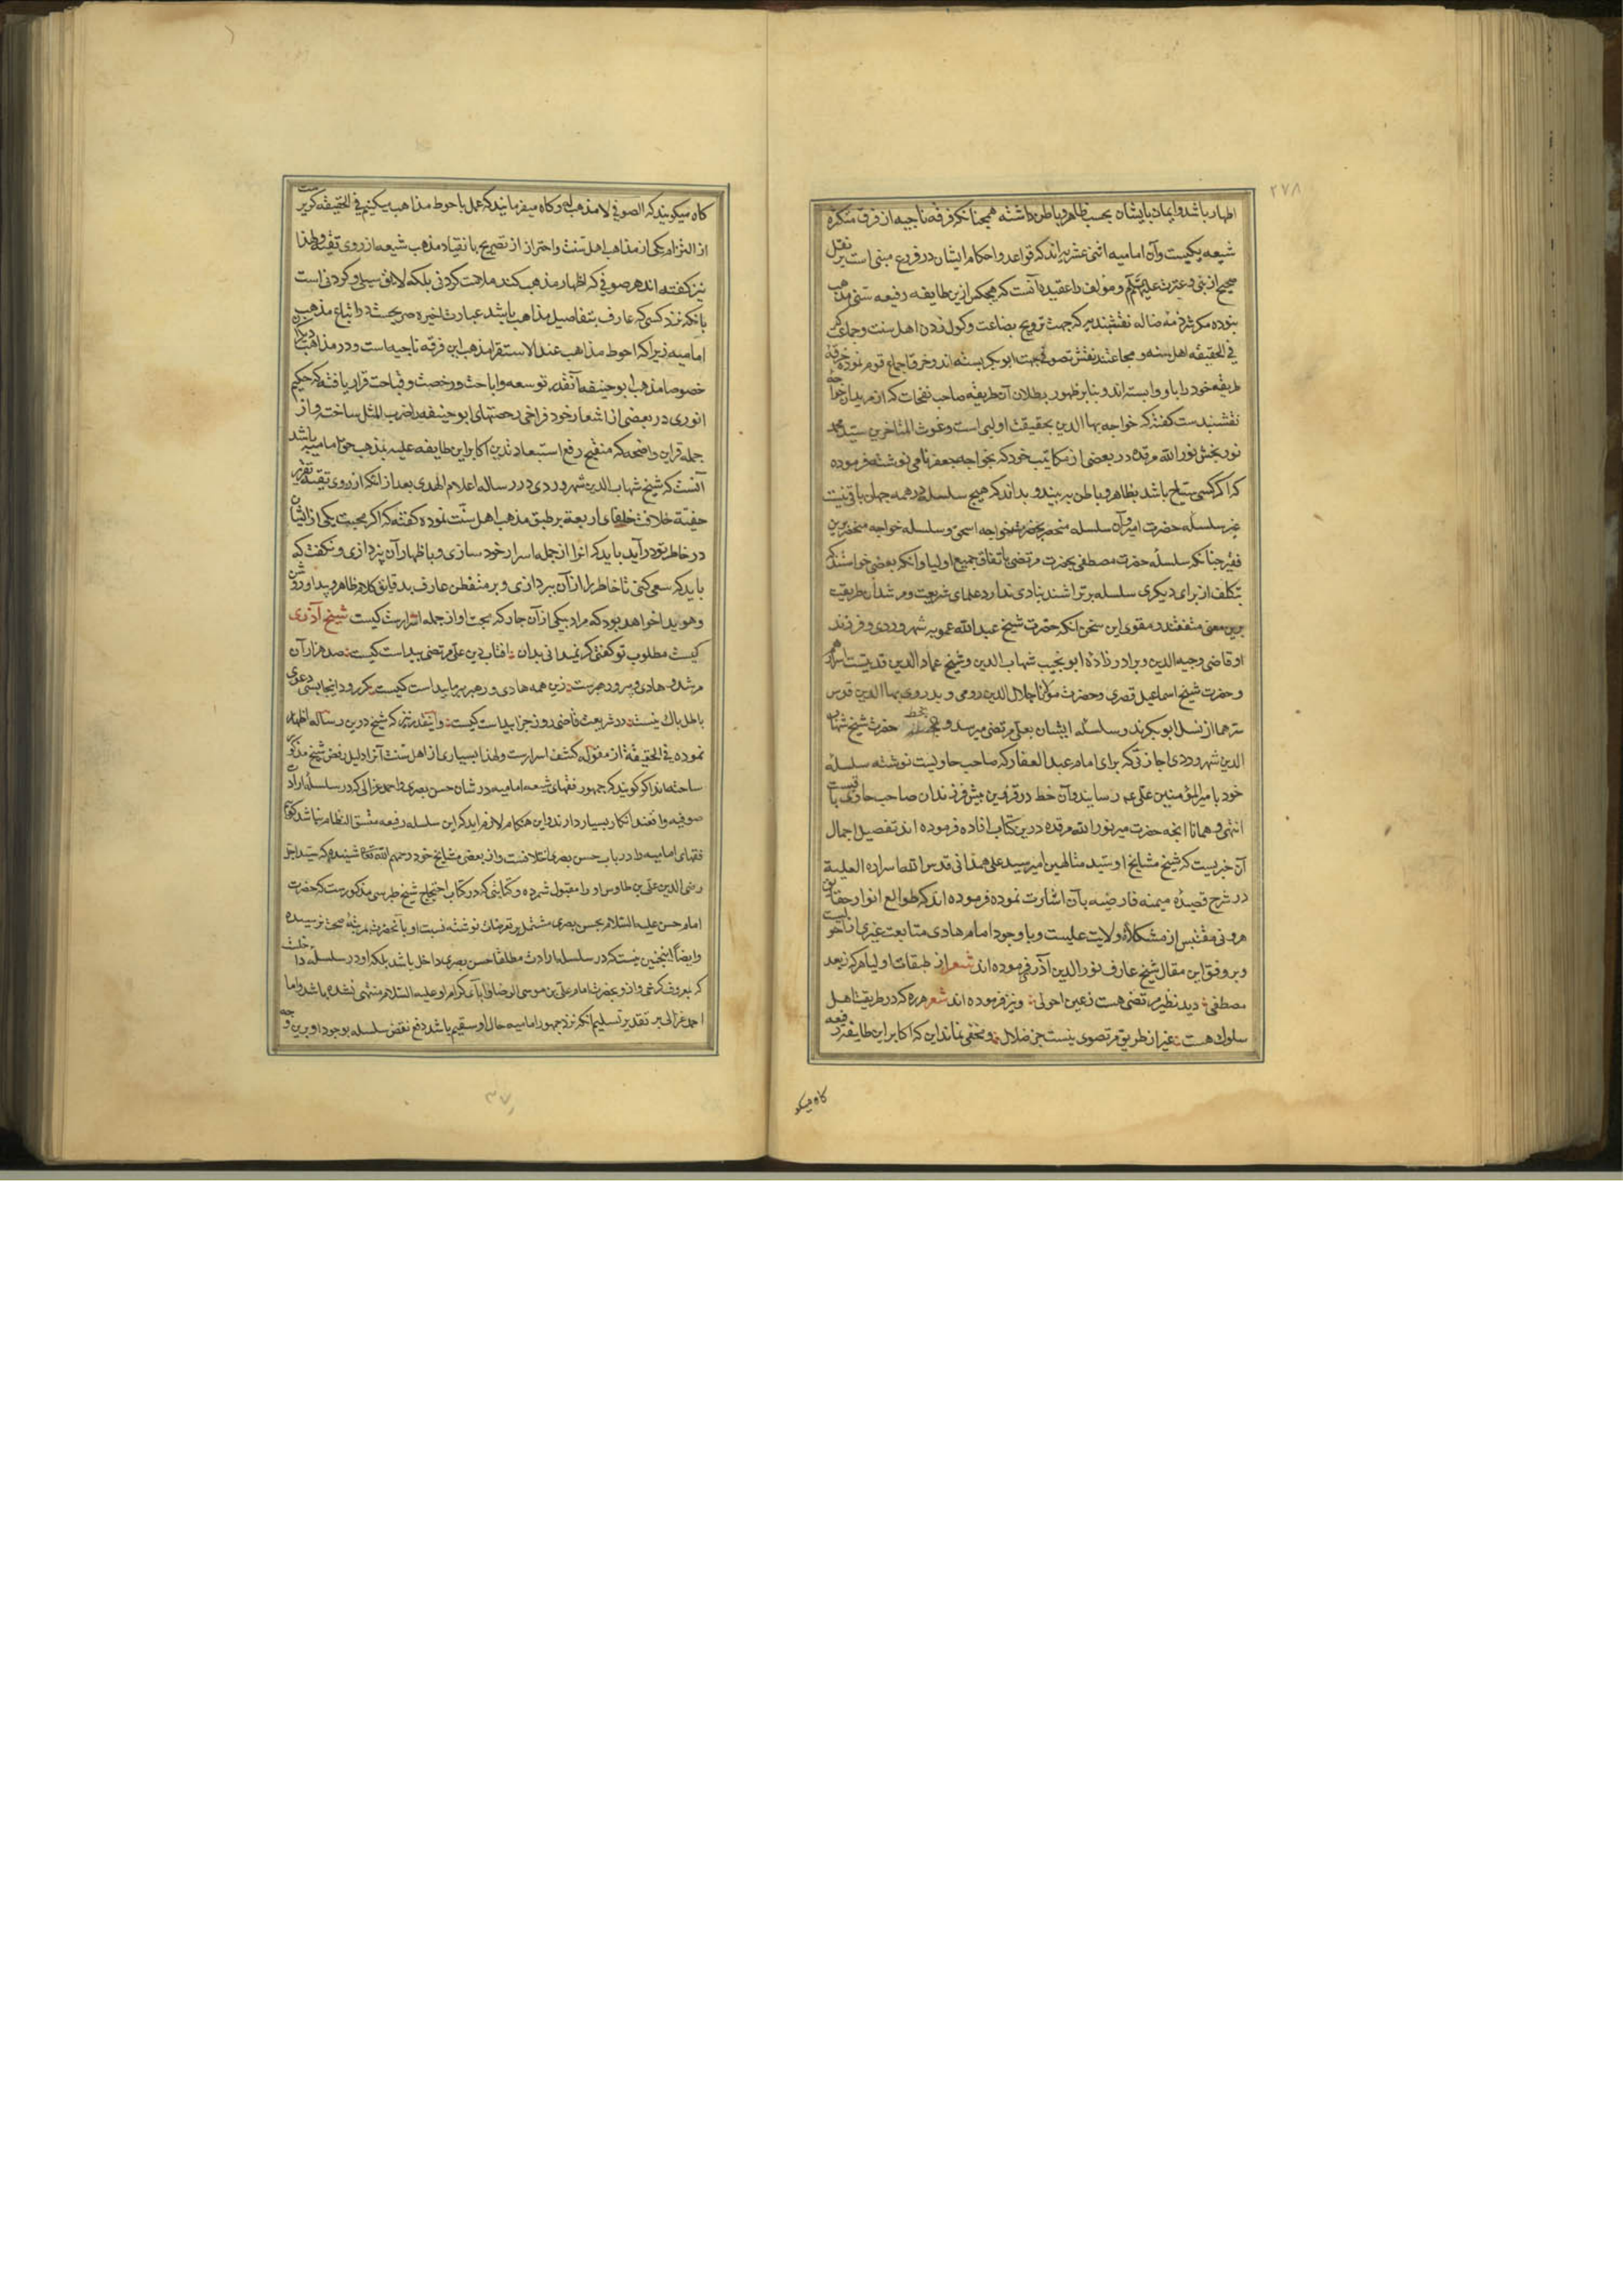 ۲۷۸
اظهار باشد و ایمان بایشان بحسب ظاهر و باطن داشته همچنانکه فرقه ناجیه از فرق متکثره
شیعه یکیست و آن امامیه اثنی عشریه‌اند که قواعد و احکام ایشان در فروع مبنی است بر نقل
صحیح از نبی و عترت علیهم و مؤلف را عقیده آنست که هیچکس ازین طایفه رفیعه سنی مذهب
نبوده مکر شرذمهٔ ضاله نقشبندیه که جهت ترویج بضاعت و کول زدن اهل سنت و جماعت که
فی الحقیقه اهل سنه و مجاعتند نقش تصوف بجهت ابو بکر بسته‌اند و خرق اجماع قوم نموده خرقه
طریقه خود را باو وابسته‌اند و بنابر ظهور بطلان آن طریقه صاحب نفحات که از مریدان خواجه
نقشبندست کفته که خواجه بهاالدین بحقیقت اویسی است و غوث المتاخرین سید محمد
نوربخش نور الله مرقده در بعضی از مکاتیب خود که بخواجه جعفر نامی نوشته فرموده
که اکر کسی سیاح باشد بظاهر و باطن ببیند و بداند که هیچ سلسله در همه جهان باقی نیست
غیر سلسله حضرت امیر و آن سلسله منحصر بحضرت خواجه اسحق و سلسله خواجه منحصر برین
فقیر چنانکه سلسله حضرت مصطفی بحضرت مرتضی باتفاق جمیع اولیا و آنکه بعضی خواستند که
بتکلف از برای دیکری سلسله بر تراشند بنیادی ندارد علمای شریعت و مرشدان طریقت
برین معنی متفقند و مقوی این سخن آنکه حضرت شیخ عبدالله عمویه شهروردی و فرزند
او قاضی وجیه الدین و برادرزاده ابو نجیب شهاب الدین و شیخ عماد الدین قدست اسرارهم
و حضرت شیخ اسماعیل قصری و حضرت مولانا جلال الدین رومی و پدر وی بهاالدین قدس
سرهما از نسل ابو بکرند و سلسله ایشان بعلی مرتضی میرسد و بخط حضرت شیخ شهاب
الدین شهروردی اجازتی که برای امام عبدالغفار که صاحب حاویست نوشته سلسله
خود با میرالمؤمنین علی عم رسانید و آن خط در قزوین پیش فرزندان صاحب حاوی باقیست
انتهی و همانا انچه حضرت میر نور الله مرقده درین کتاب افاده فرموده‌اند تفصیل اجمال
آن خبریست که شیخ مشایخ او سید متالهین امیر سید علی همدانی قدس الله اسراره العلیة
در شرح قصیدهٔ میمیه فارضیه بآن اشارت نموده فرموده‌اند که طوالع انوار حقایق
هر ونی مقتبس از مشکاة ولایت علیست و باوجود امام هادی متابعت غیری از احولیست
و بر وفق این مقال شیخ عارف نور الدین آذری فرموده‌اند شعر از طبقات اولیا هر که زبعد
مصطفی دید نظیر مرتضی هست زعین احولی و نیز فرموده‌اند شعر هره که در طریقت اهل
سلوک هست غیر از طریق مرتضوی نیست جز ضلال و مخفی نماند این که اکابر این طایفه رفیعه
کاه میکو
کاه میکویند که الصوفی لا مذهب له و کاه میفرمایند که عمل باحوط مذاهب میکنیم فی الحقیقه کریزست
از التزام یکی از مذاهب اهل سنت و احتراز از تصریح بانقیاد مذهب شیعه از روی تقیه و لهذا
نیز کفته‌اند هر صوفی که اظهار مذهب کند ملامت کردنی بلکه لایق سیلی و کردنی است
بآنکه نزد کسی که عارف بتفاصیل مذاهب باشد عبارت اخیره صریحست در اتباع مذهب
امامیه زیرا که احوط مذاهب عند الاستقرا مذهب این فرقه ناجیه است و در مذاهب دیکران
خصوصا مذهب ابو حنیفه آنقدر توسعه و اباحت و رخصت و قباحت قرار یافته که حکیم
انوری در بعضی از اشعار خود فراخی رخصتهای ابو حنیفه را ضرب المثل ساخته و از
جمله قراین واضحه که منقح رفع استبعاد تدین اکابر این طایفه علیه بمذهب حق امامیه باشد
آنست که شیخ شهاب الدین شهروردی در رساله اعلام الهدی بعد از آنکه از روی تقیه تقریر
حقیة خلافت خلفای اربعة بر طبق مذهب اهل سنت نموده کفته که اکر محبت یکی از ایشان
در خاطر تو درآید باید که انرا از جمله اسرار خود سازی و باظهار آن نپردازی و نکفت که
باید که سعی کنی تا خاطر را از آن بپردازی و بر متفطن عارف بدقایق کلام ظاهر و پیدا و روشن
و هویدا خواهد بود که مراد بیکی از آن جار که محبت او از جمله اسرارست کیست شیخ آذری
کیست مطلوب تو کفتی کر نمیدانی بدان آفتاب دین علی مرتضی پیداست کیست صد هزار آن
مرشد و هادی و پیر و رهبرست زین همه هادی و رهبر پیر ما پیداست کیست بکر رود اینجا بسی دعوی
باطل باک نیست در شریعت قاضی روز جزا پیداست کیست و اینقدر نیز که شیخ درین رساله اظهار
نموده فی الحقیقة از مقوله کشف اسرارست و لهذا بسیاری از اهل سنت آنرا دلیل رفض شیخ مذکور
ساخته‌اند اکر کویند که جمهور فقهای شیعه امامیه در شان حسن بصری و احمد غزالی که در سلسله ارادت
صوفیه واقعند انکار بسیار دارند و این هنکام لازم اید که این سلسله رفیعه متسق النظام نباشد کوییم
فقهای امامیه را در باب حسن بصری اختلافست و از بعضی مشایخ خود رحمهم الله تعالی شنیدم که سید اجل
رضی الدین علی بن طاوس او را مقبول شمرده و کتابتی که در کتاب احتجاج شیخ طبرسی مذکورست که حضرت
امام حسن علیه السلام بحسن بصری مشتمل بر تعرضات نوشته نسبت او بآنحضرت بمرتبهٔ صحت نرسیده
و ایضاً اینچنین نیست که در سلسله ارادت مطلقا حسن بصری داخل باشد بلکه او در سلسله داخلست
که بمعروف کرخی و از و بحضرت امام علی بن موسی الرضا و آبا کرام او علیه السلام منتهی نشده باشد و اما
احمد غزالی بر تقدیر تسلیم آنکه نزد جمهور امامیه حال او سقیم باشد دفع نقض سلسله بوجود او برین وجه